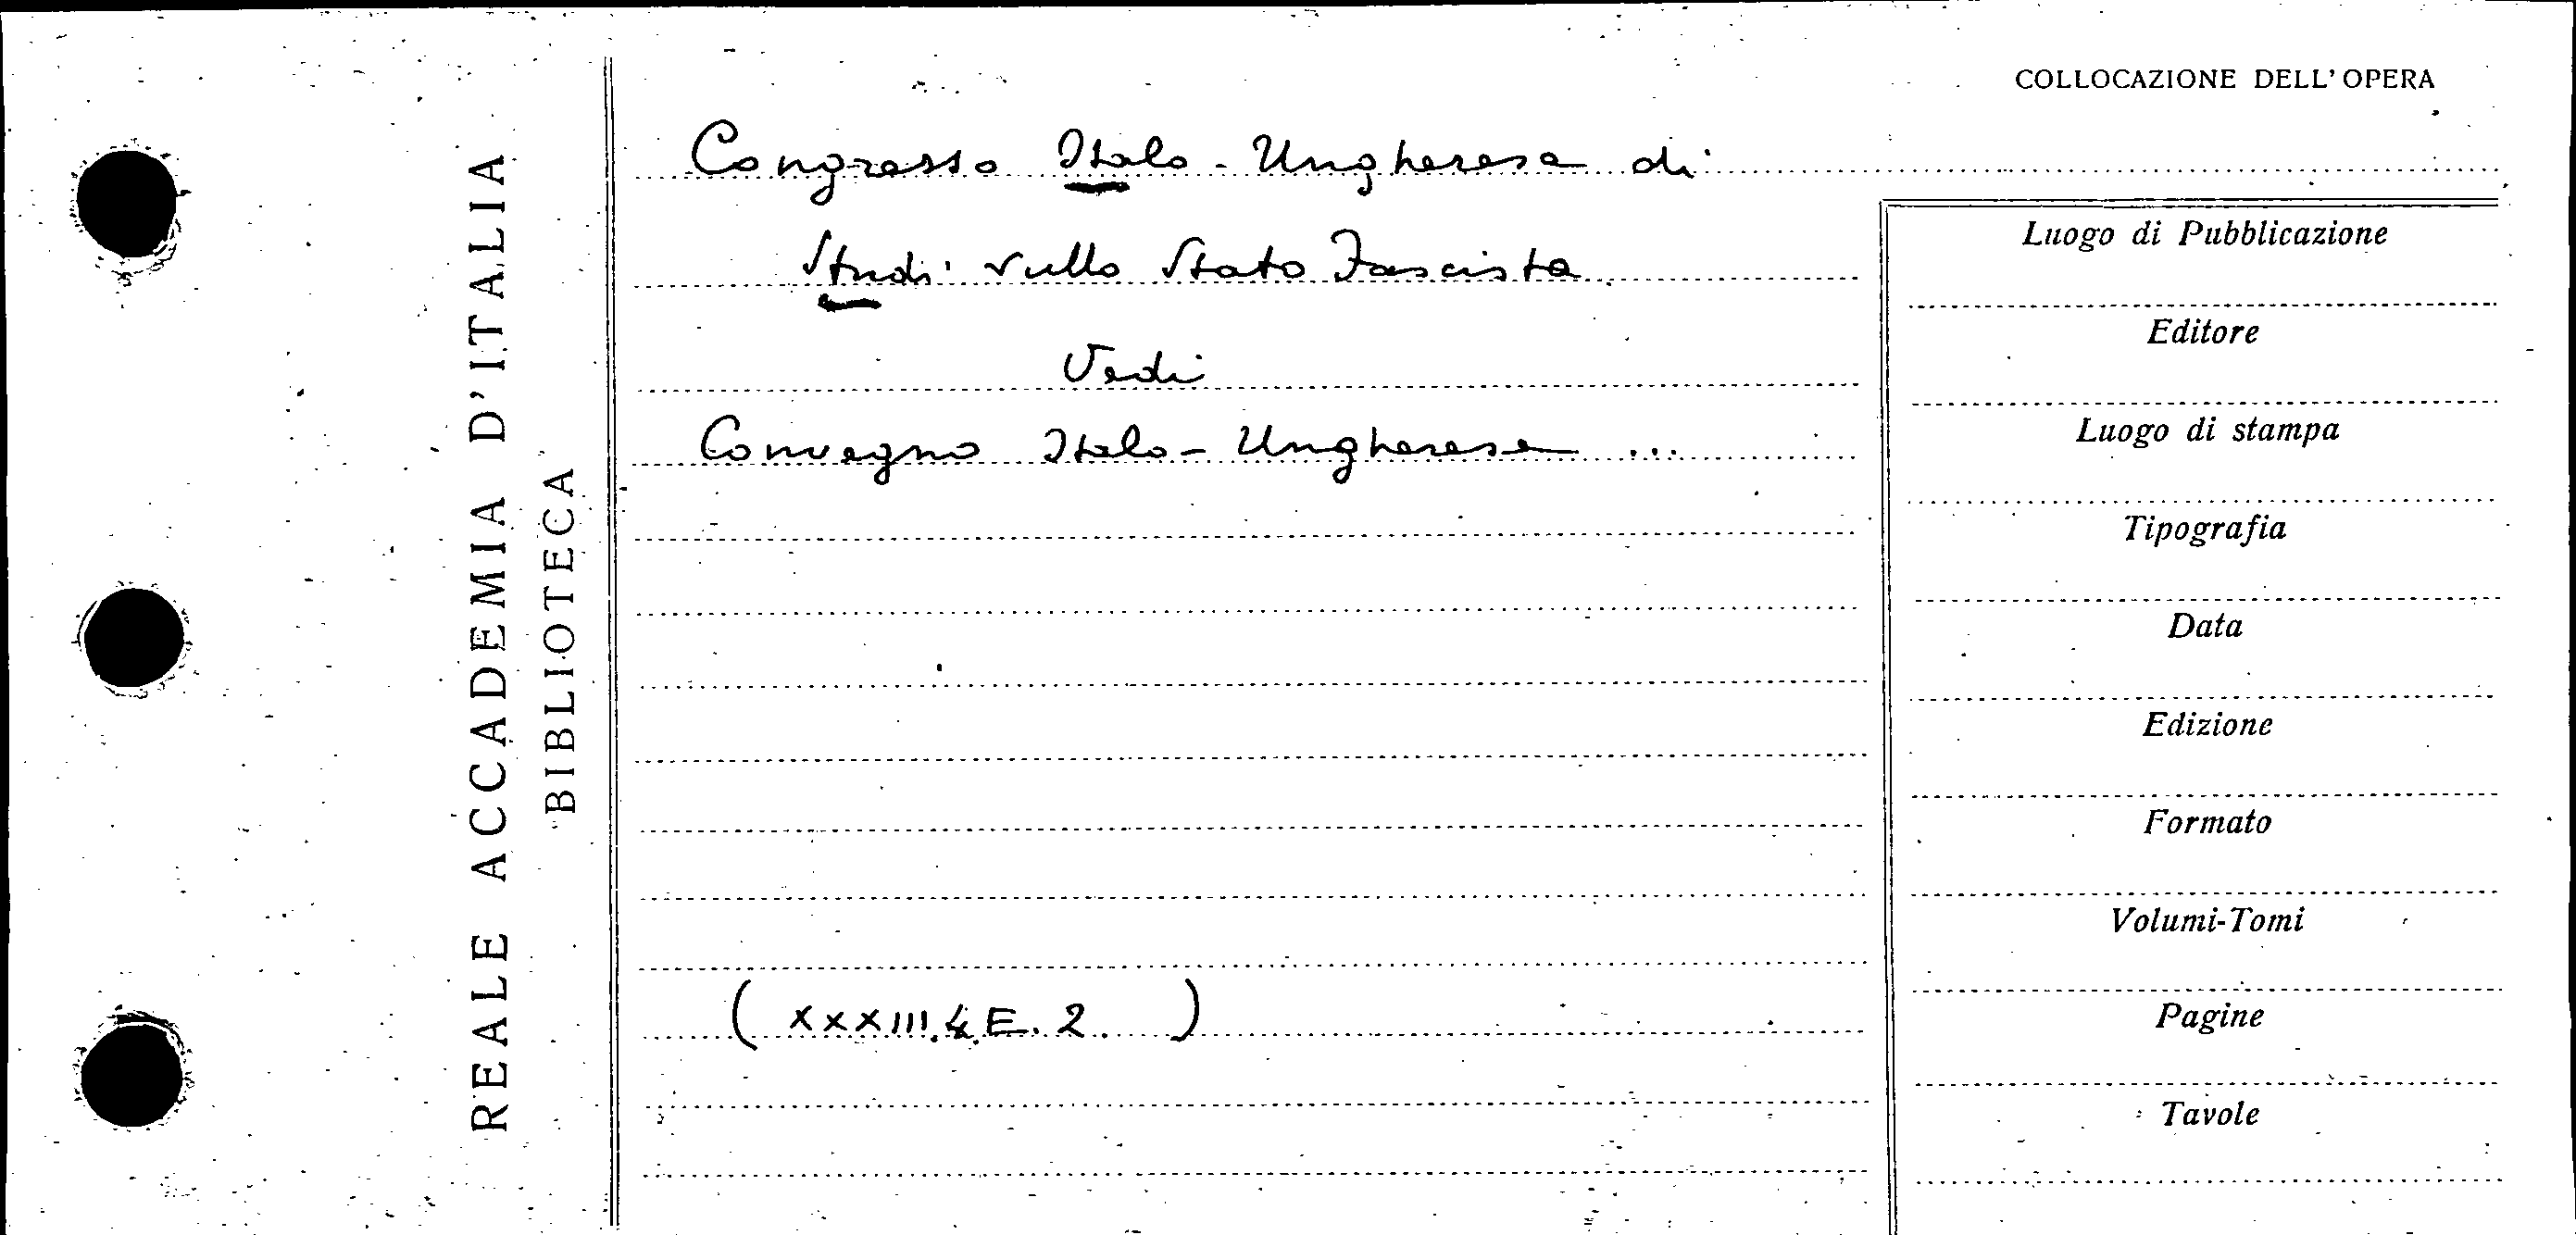 REALE ACCADEMIA D'ITALIA
BIBLIOTECA
COLLOCAZIONE DELL'OPERA
Congresso Italo-Ungherese di
Studi sullo Stato Fascista
Vedi
Convegno Italo-Ungherese ...
(XXXIII.4.E.2.)
Luogo di Pubblicazione
Editore
Luogo di stampa
Tipografia
Data
Edizione
Formato
Volumi-Tomi
Pagine
Tavole